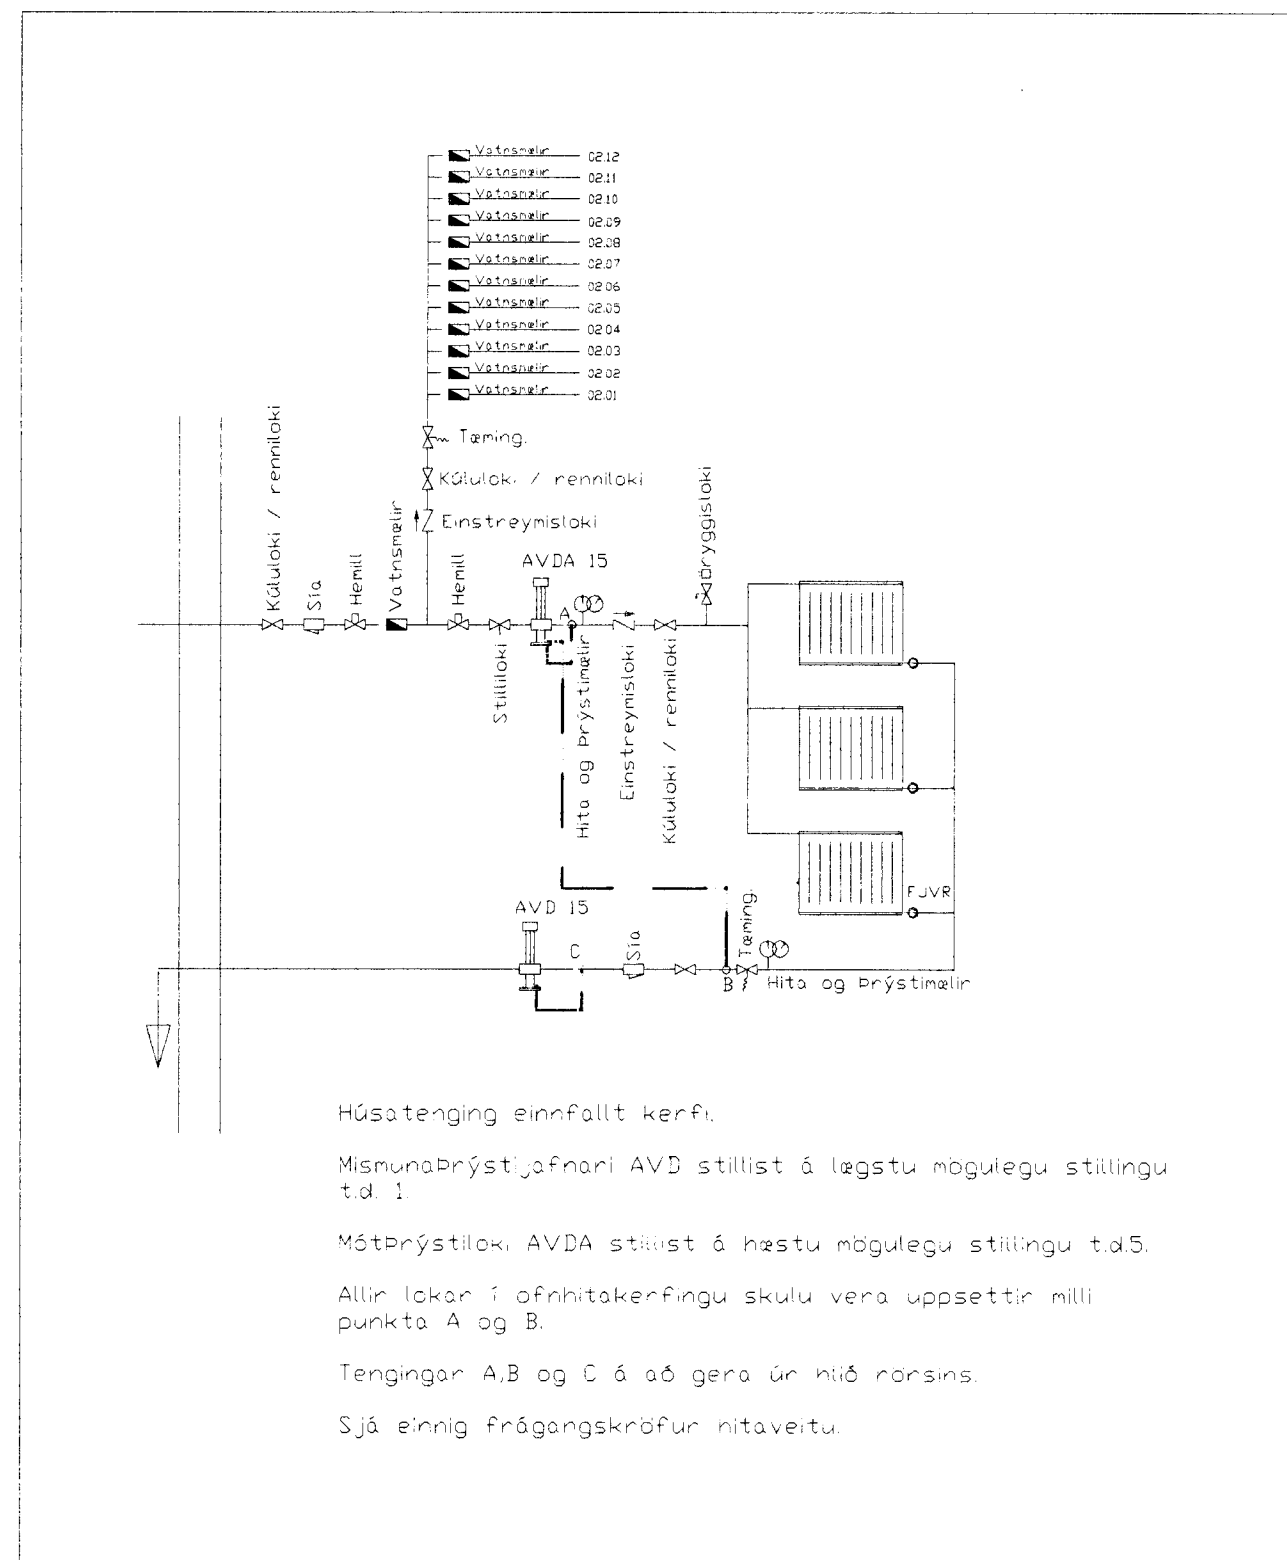 Vatnsmælir 02.12
Vatnsmælir 02.11
Vatnsmælir 02.10
Vatnsmælir 02.09
Vatnsmælir 02.08
Vatnsmælir 02.07
Vatnsmælir 02.06
Vatnsmælir 02.05
Vatnsmælir 02.04
Vatnsmælir 02.03
Vatnsmælir 02.02
Vatnsmælir 02.01
Tæming.
Kúluloki / renniloki
Einstreymisloki
Kúluloki / renniloki
Sía
Hemill
Vatnsmælir
Hemill
AVDA 15
A
Öryggisloki
Stilliloki
Hita og Þrýstimælir
Einstreymisloki
Kúluloki / renniloki
FJVR
AVD 15
C
Sía
Tæming.
B
Hita og Þrýstimælir
Húsatenging einnfallt kerfi.
MismunaÞrýstijafnari AVD stillist á lægstu mögulegu stillingu
t.d. 1.
MótÞrýstiloki AVDA stillist á hæstu mögulegu stillingu t.d.5.
Allir lokar í ofnhitakerfingu skulu vera uppsettir milli
punkta A og B.
Tengingar A,B og C á að gera úr hlið rörsins.
Sjá einnig frágangskröfur hitaveitu.